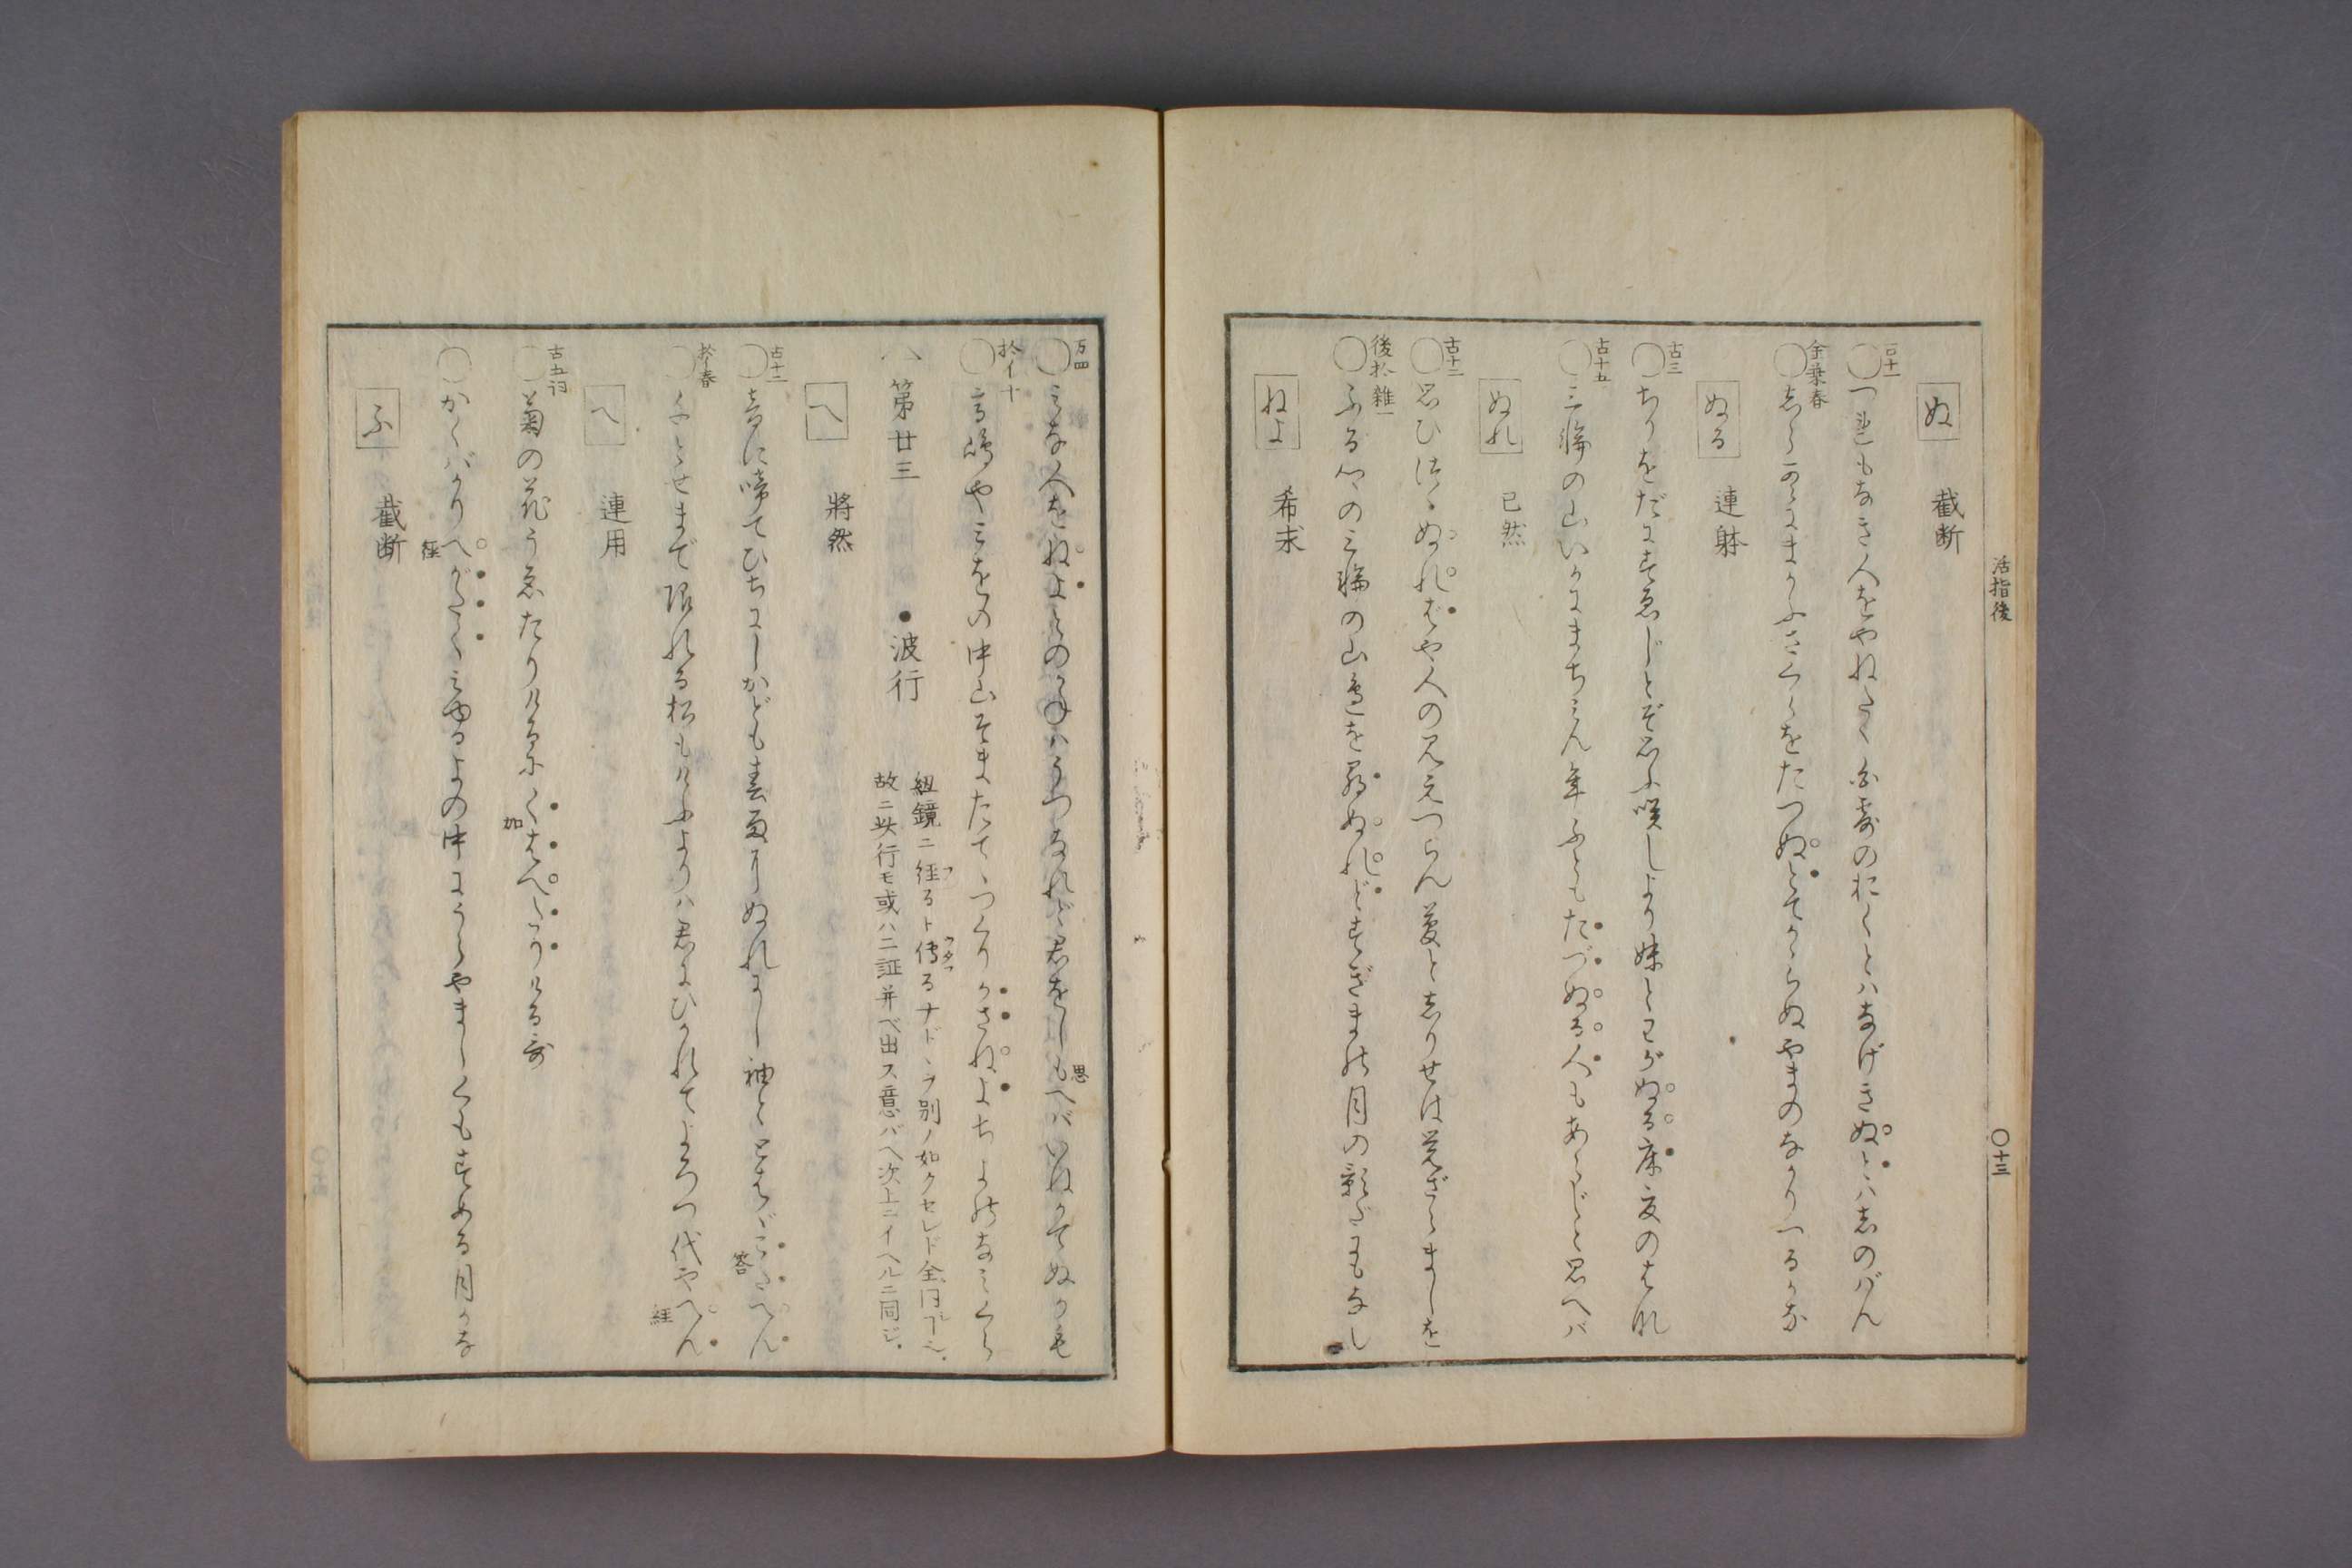 活指後
〇十三
ぬ 截断
古十一
つれもなき人をやねたく白露のおくとハなげきぬとハしのバん
金葉春
しら雲にまがふさくらをたづぬとてかゝらぬやまのなかりつるかな
ぬる 連躰
古三
ちりをだにすゑじとぞ思ふ咲しより妹とわがぬる床夏のはな
古十五
三輪の山いかにまちみん年ふともたづぬる人もあらじと思へバ
ぬれ 已然
古十二
思ひつゝぬれバや人の見えつらん夢としりせば覚ざらましを
後拾雜一
ふる
の三輪の山邊を尋ぬれどすぎまの月の影だにもなし
ねよ 希求
万四
みな人をねよとのかねハうつなれど君をしもへバいねかてぬかも
思
拾イ十
高嶋やみをの中山そまたてゝつくりかさねよちよのなみくら
八 第廿三 ●波行
紐鏡ニ經るト傳るナドヽヲ別ノ如クセレド全同
故ニ此行モ或ハ二証并ベ出ス意バヘ次上ニイヘルニ同ジ.
へ 將然
古十二
音に啼てひちにしかども春雨にぬれにし袖ととはゞこたへん
答
拾春
ちとせまで限れる松もけふよりハ君にひかれてよろづ代やへん
経
へ 連用
古五詞
菊の花うゑたりけるにくはへたりける哥
加
かくバかりへがたくみゆるよの中にうらやましくもすめる月かな
経
ふ 截断